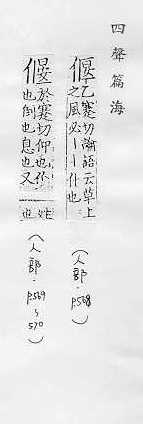 四聲篇海
偃乙蹇切論語云草上
之風必丨丨仆也
(人部.p.568)
偃於蹇切仰也仆
也倒也息也又
姓也
(人部.p.569~570)